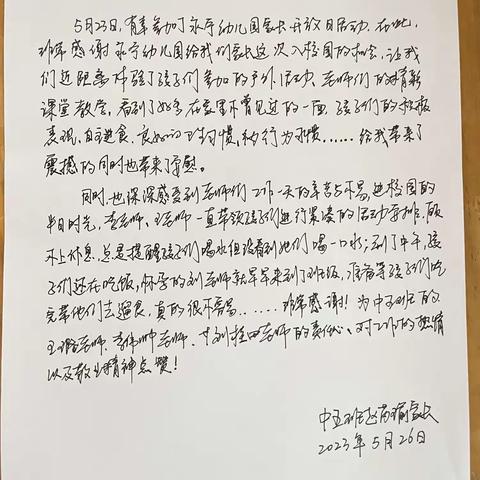 5月23日,有幸参加了永宁幼儿园家长开放日活动。在此,
非常感谢永宁幼儿园给我们家长这次入校园的机会,让我
们近距离体验了孩子们参加的户外活动、老师们的精彩
课堂教学。看到了好多在家里不曾见过的一面,孩子们的积极
表现、自主进食、良好的卫生习惯、和行为习惯……给我带来了
震撼的同时也带来了宽慰。
同时,也深深感受到老师们工作一天的辛苦与不易,进校园的
半日时光,李老师、王老师一直带领孩子们进行紧凑的活动安排,顾
不上休息,总是提醒孩子们喝水但没看到她们喝一口水;到了中午,孩
子们还在吃饭,怀孕的刘老师就早早来到了班级,准备等孩子们吃
完带他们去遛食,真的很不容易……非常感谢!为中五班的
王老师、李老师、刘老师的责任心、对工作的热情
以及敬业精神点赞!
中五班家长
2023年5月26日